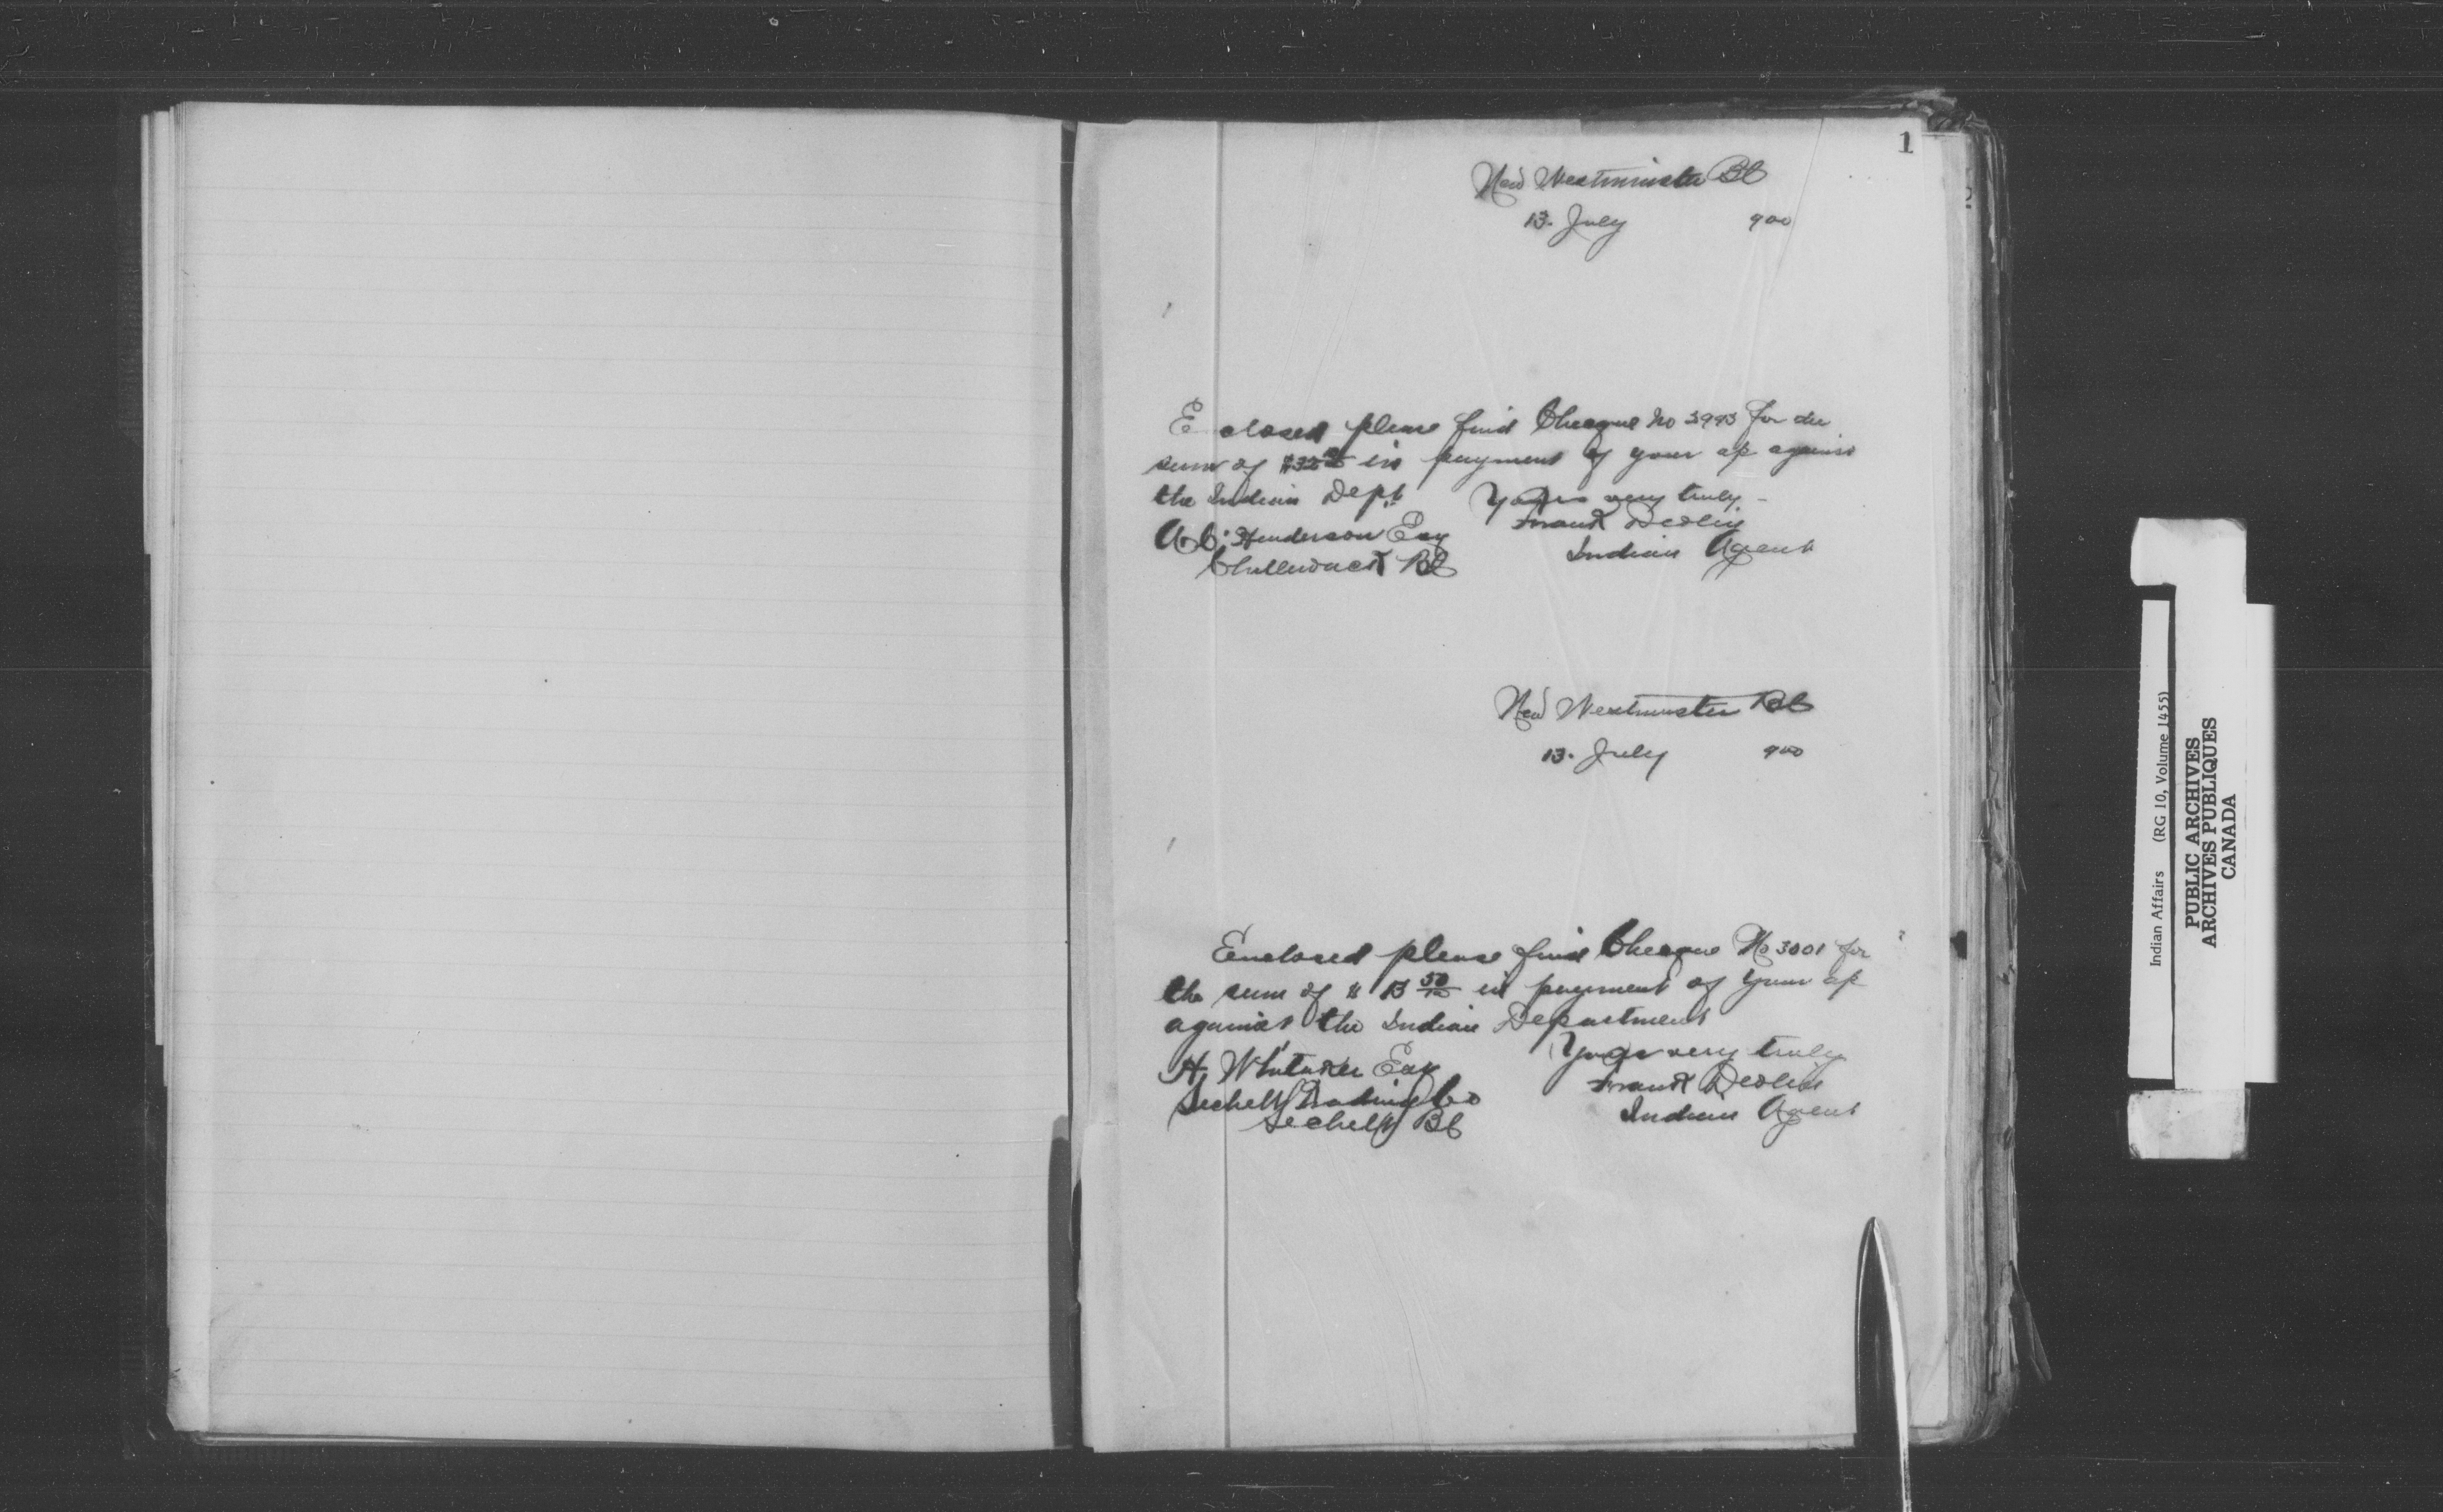 1
New Westminster BC
13. July 900
E closed please find Cheque No 3993 for the
sum of $32 in payment of your a/c against
the Indian Dept Yours very truly -
Frank Devlin
A.C. Henderson Esq
Indian Agent
Chilliwack BC
New Westminster BC
13. July 900
Eenclosed please find Cheque No 3001 for
the sum of $ 13 50/100 in payment of your a/c
against the Indian Department
Yours very truly
H. Whitaker Esq
Frank Devlin
Sechelt Trading Co
Indian Agent
Sechelt BC
Indian Affairs (RG 10, Volume 1455)
PUBLIC ARCHIVES
ARCHIVES PUBLIQUES
CANADA